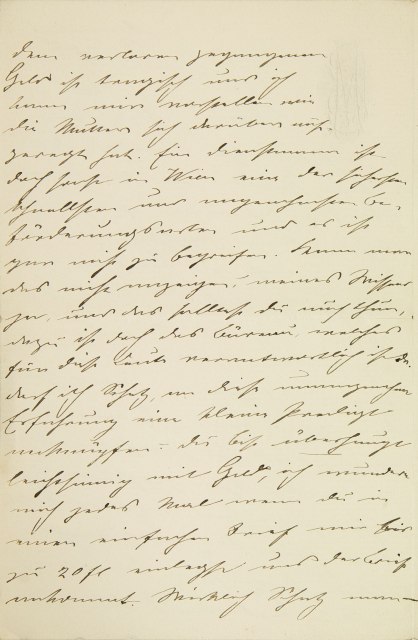 dem verloren gegangenen
Geld ist tragisch und ich
kann mir vorstellen wie
die Mutter sich darüber auf-
geregt hat. Ein Dienstmann ist
doch sonst in Wien eine der sichersten
schnellsten und angenehmsten Be-
förderungsarten und es ist
gar nicht zu begreifen. Kann man
das nicht anzeigen, meines Wissens
ja, und das solltest du auch thun,
dazu ist doch das Büreau, welches
für diese Leute verantwortlich ist da.
Darf ich Schatz, an diese unangenehme
Erfahrung eine kleine Predigt
anknüpfen – du bist überhaupt
leichtsinnig mit Geld, ich wundere
mich jedes Mal wenn du in
einen einfachen Brief mir bis
zu 20 fl einlegst und der Brief
ankommt. Wirklich Schatz man